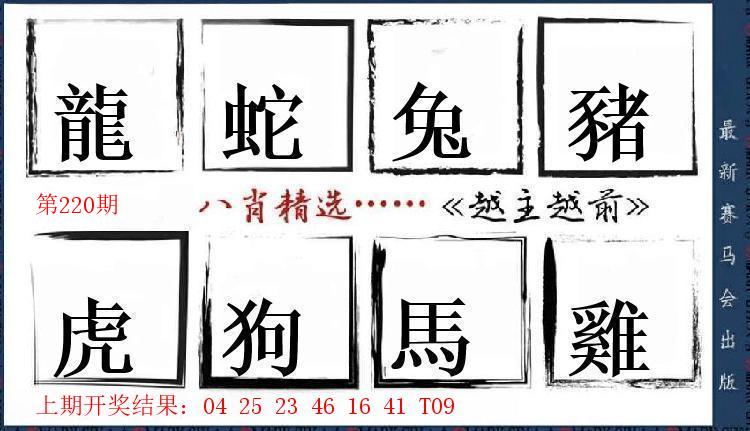 龍 蛇 兔 豬
第220期 八肖精选…… 《越主越前》
虎 狗 馬 雞
上期开奖结果：04 25 23 46 16 41 T09
最新赛马会出版